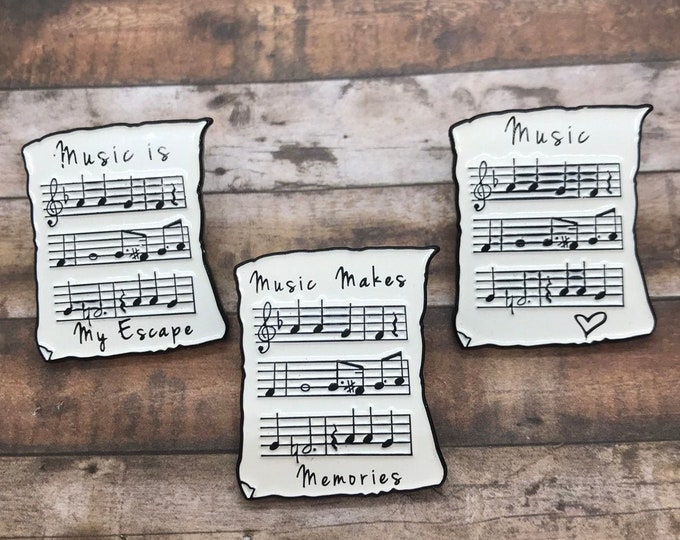 Music is
My Escape
Music Makes
Memories
Music